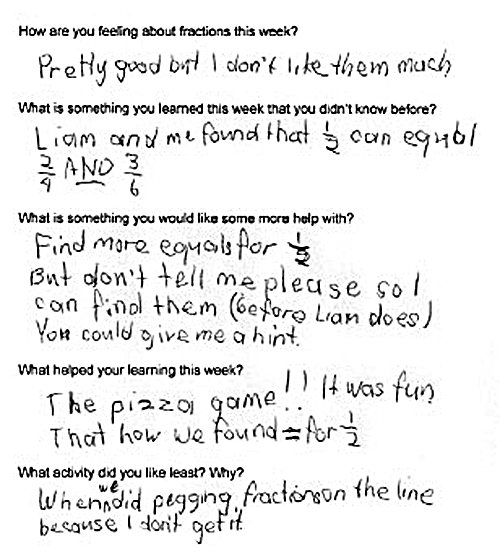 How are you feeling about fractions this week?
Pretty good but I don't like them much
What is something you learned this week that you didn't know before?
Liam and me found that 1/2 can equal
2/4 AND 3/6
What is something you would like some more help with?
Find more equals for 1/2
But don't tell me please so I
can find them (before Lian does)
You could give me a hint.
What helped your learning this week?
The pizza game!! It was fun
That how we found = for 1/2
What activity did you like least? Why?
When we did pegging fractions on the line
because I don't get it